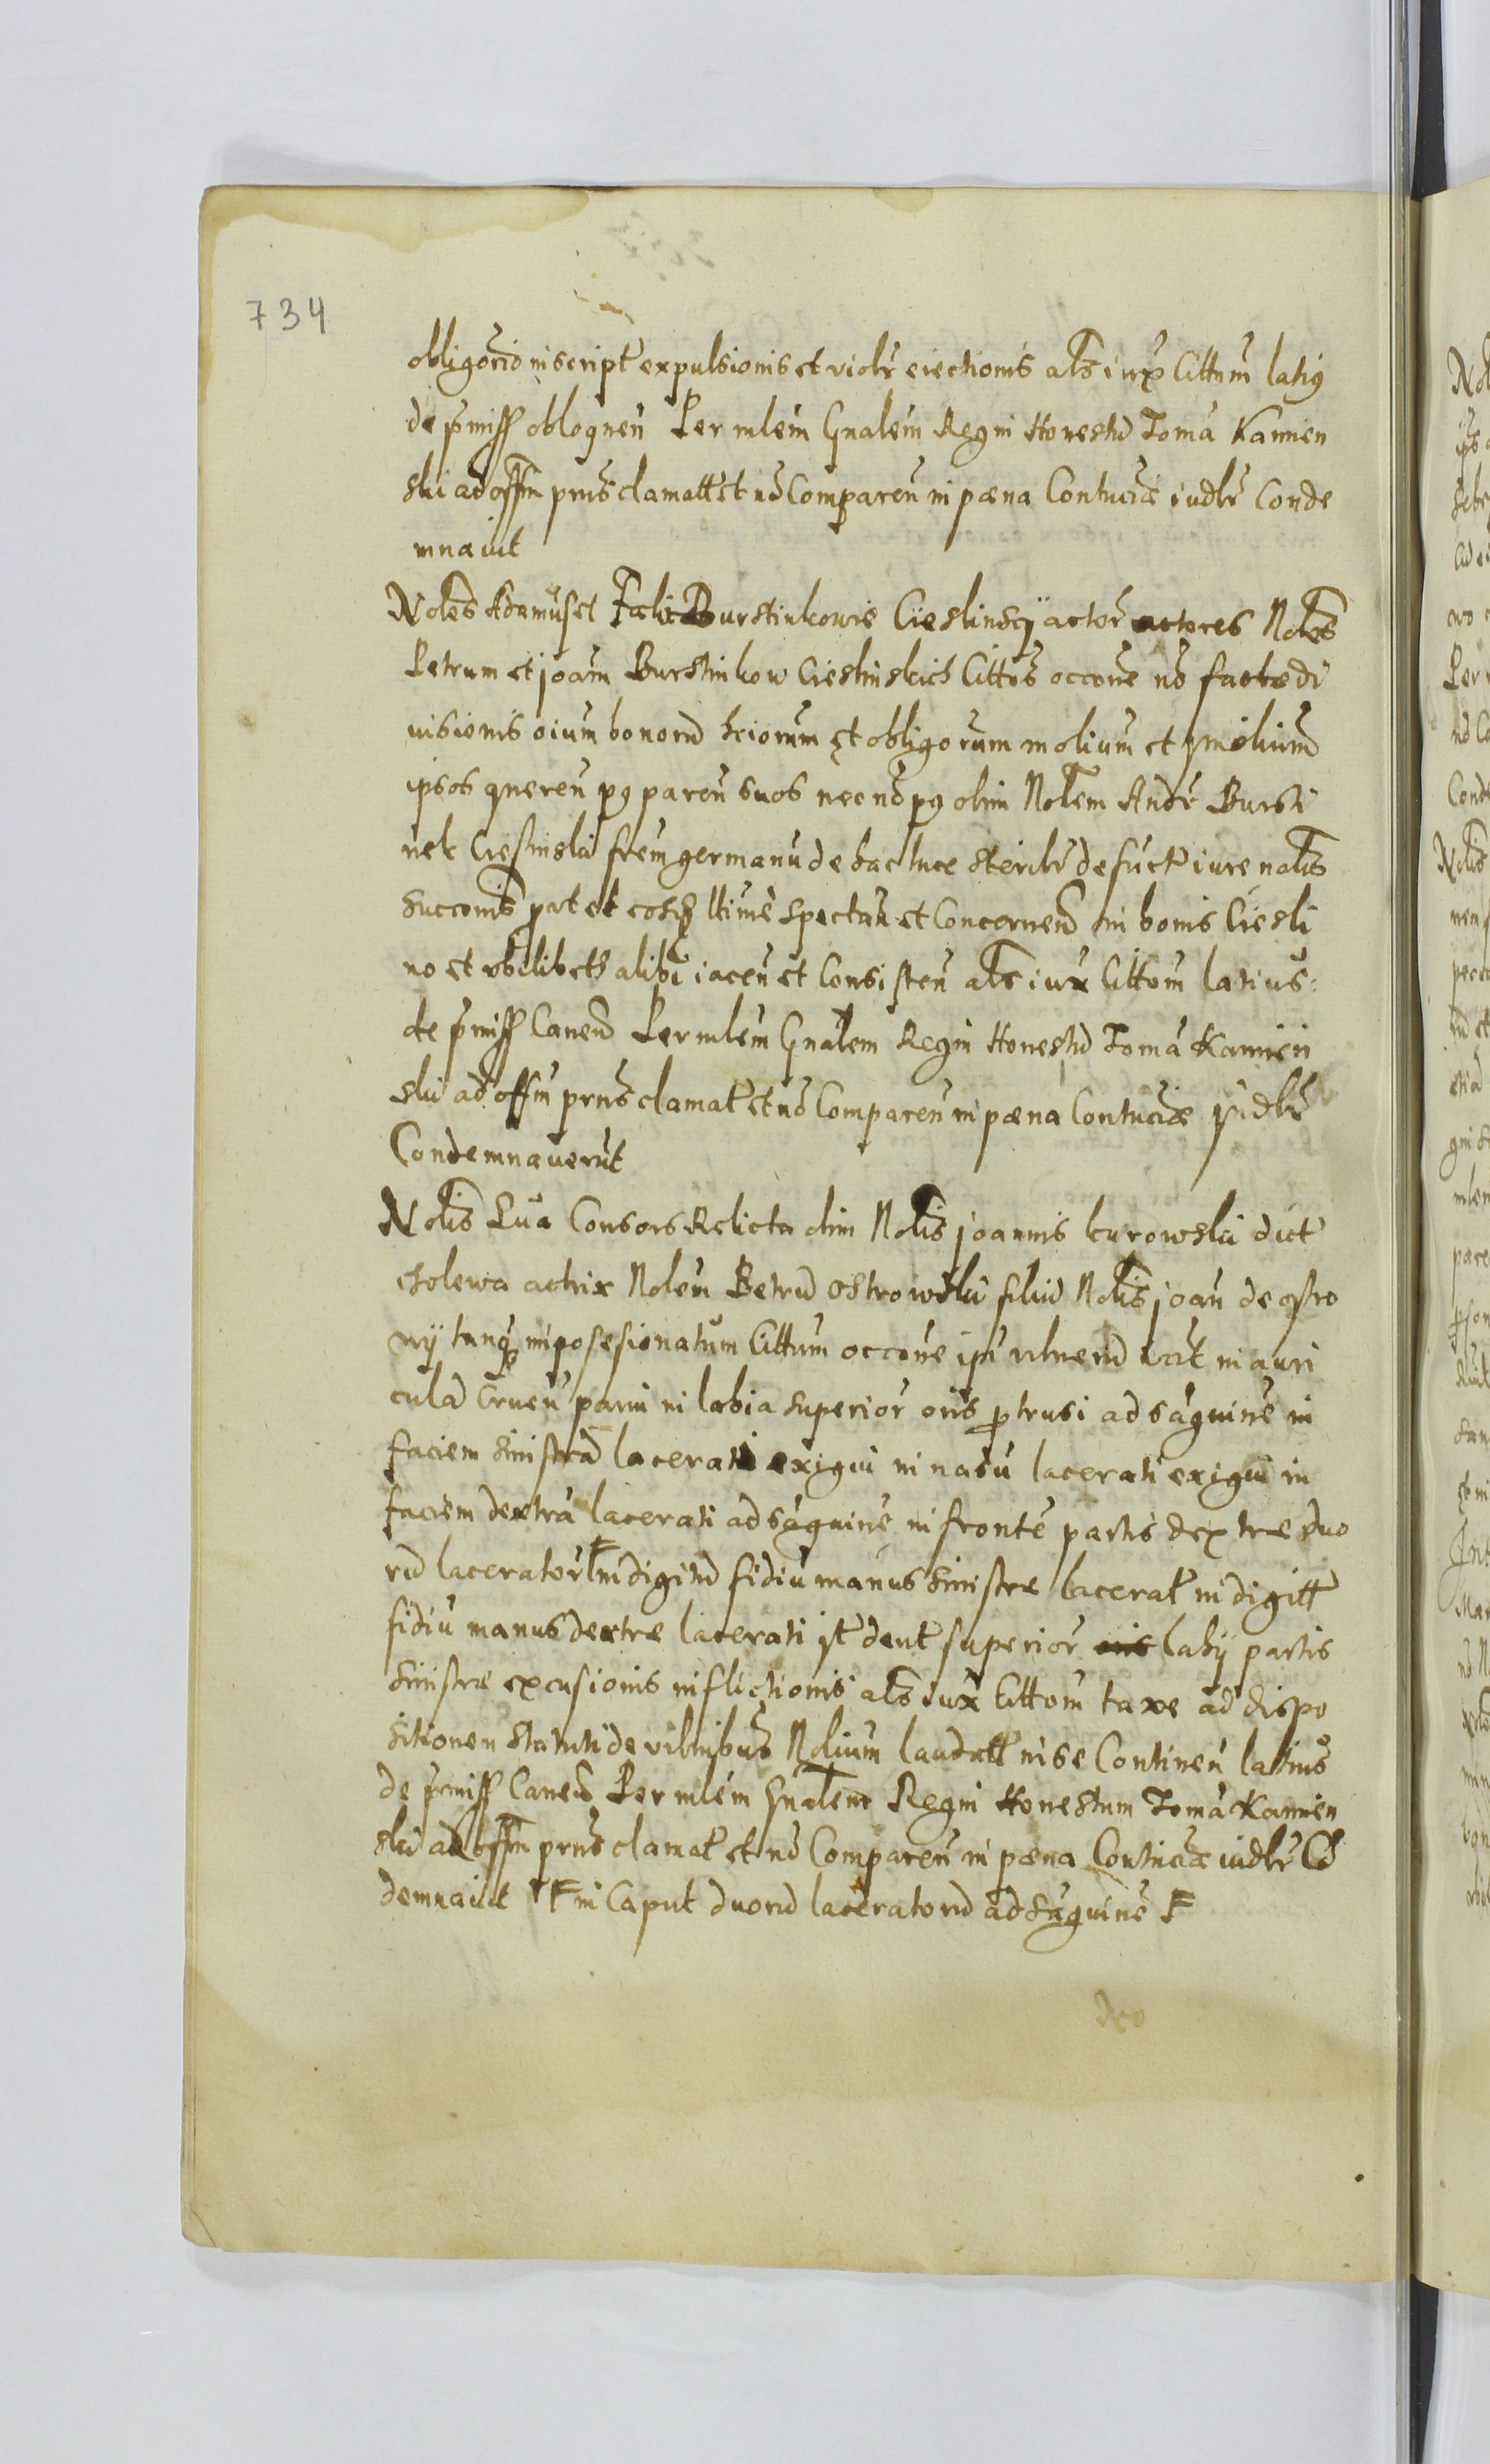 734
obligōrio inscript expulsionis et violr eiectionis als iux Cittum latig
de pmiss obloquen Per mlem Gnalem Regni Honestu Toma Kamien
ski ad offm prns clamatt et no Comparen in pæna Contuciæ iudlr Conde
mnauit
Noles Adamus et Fælix Burstinkowie Cieslinscÿ actor actores Noles
Petrum et joam Burstinkow Cieslinskich Cittos occone no factæ di
uisionis oium bonoru hriorum et obligorum molium et īmolium
ipsos queren pg paren suos nec no pg olim Nolem Andr Bursti
nek Cieslinski frem germanu de hac luce sterilr defuct iure nalis
succonis prt et eosq ltime spectan et Concernen in bonis Ciesli
no et vbilibet alibi iacen et Consisten als iux Cittom latius
de pmiss Canen Per mlem Gnalem Regni Honestu Toma Kamien
ski ad offm prns clamat et no Comparen in pæna Contuciæ iudlr
Condemnauerut
Nolis Eua Consors Relicta olim Nolis joannis kurowski dict
cholewa actrix Nolem Petru Ostrowski filiu Nolis joan de ostro
wÿ tanq inposesionatum Cittum occone ipi vulneru in auri
cula Cruen parui in labia superior oris ptrusi ad saguine in
faciem sinistra lacerati exigui in nasu lacerati exigui in
faciem dextra lacerati ad saguine in fronte partis dextræ duo
ru lacerator F in digitu fidiu manus sinistræ lacerat in digitt
fidiu manus dextræ lacerati it dent superior labÿ partis
sinistræ excusionis inflictionis als iux Cittom taxe ad dispo
sitionen Statuti de vulnibus Nolium laudatt in se Continen latius
de pmiss Canen Per mlem Gnalem Regni Honestum Toma Kamien
ski ad offm prns clamat et no Comparen in pæna Contuciæ iudlr Co
demnauit F in Caput duoru laceratoru ad saguine F